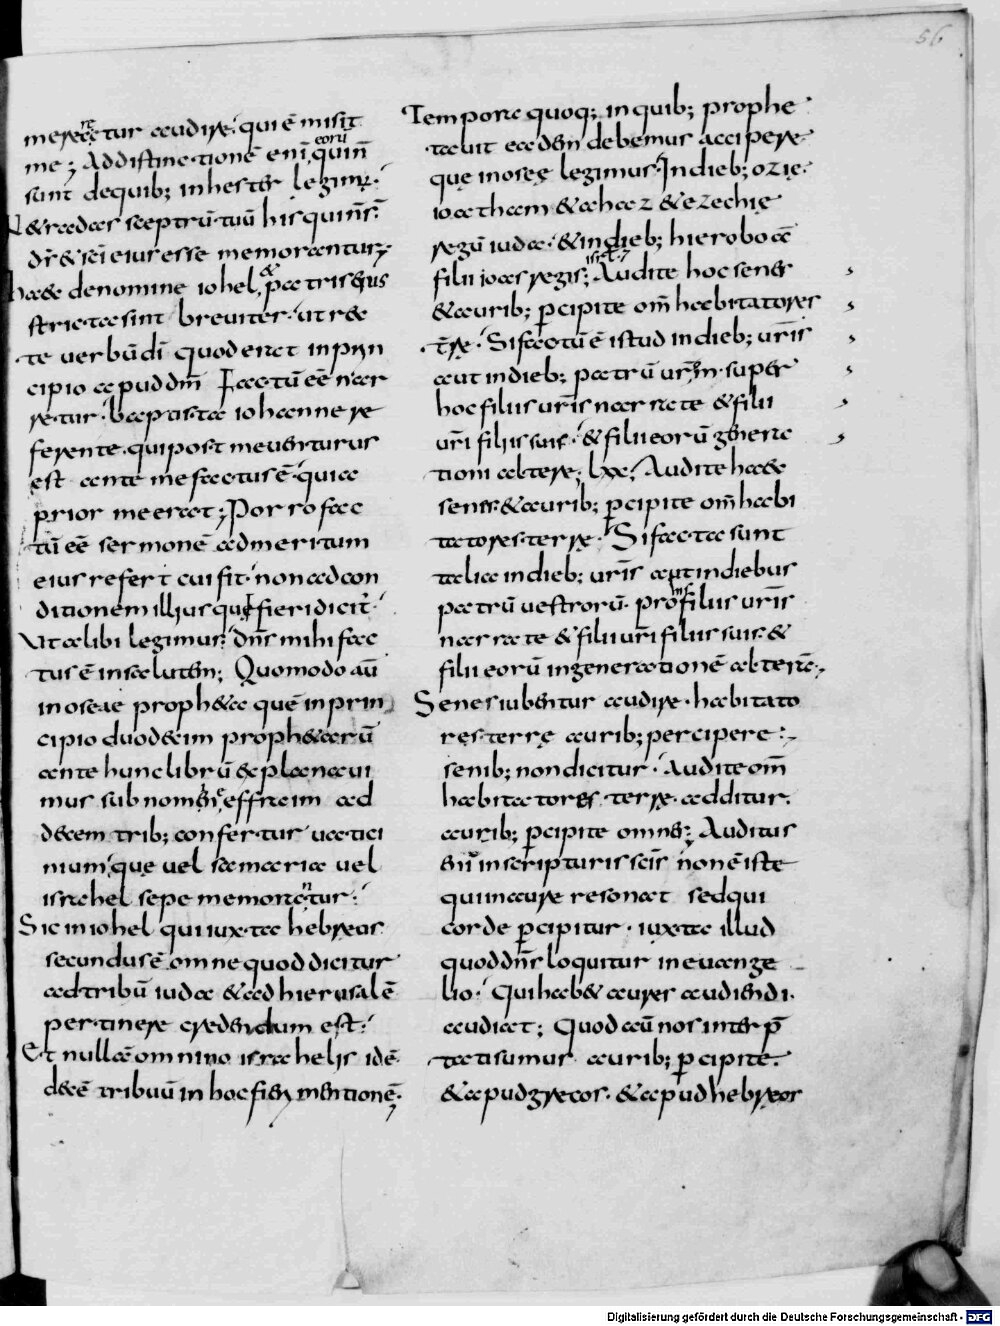 56
merere tur audire· qui ē misit
me; Addistinctionē enī eorū quin̄
sunt dequib; inhester legimꝰ·
N& radas sceptrū tuū his qui n̄ s̄·
dr̄ & sc̄i eius esse memorantur;
haec de nomine iohel, & patris eius
stricta sint breviter· ut rec
te verbū dn̄i quod erat in prin
cipio apud dm̄ Factū eē nar
retur· baptista iohanne re
ferente· qui post me venturus
est ante me factus ē· quia
prior me erat; Porro fac
tū eē sermonē ad meritum
eius refert cui fit· non ad con
ditionem illius qui fieri dicit·
Ut alibi legimus· dn̄s mihi fac
tus ē in salutem; Quomodo aū
in oseae proph&a quē in prin
cipio duodecim proph&arū
ante hunc librū explanavi
mus sub nomine effraim ad
decem trib; confertur vatici
nium· que vel samaria vel
israhel sepe memorantur·
Sic in iohel qui iuxta hebreos
secundus ē omne quod dicitur
ad tribū iuda & ad hierusalē
pertinere credendum est·
Et nullā omnino israhelis idē
decē tribuū in hoc fieri mentionē·
Tempora quoq; in quib; prophe
tavit eadem debemus accipere
que in osee legimus· In dieb; ozie·
ioatham & achaz & ezechie
regū iuda· & in dieb; hieroboā
filii ioas regis isrl; Audite hoc senes
& aurib; ꝑcipite om̄ habitatores
t̄re· Si factū ē istud in dieb; vr̄is
aut in dieb; patrū vr̄m· super
hoc filiis vr̄is narrate & filii
vr̄i filiis suis· & filii eorū genera
tioni alterę; lxx; Audite haec
senes· & aurib; ꝑcipite om̄ habi
tatores terrę· Si facta sunt
talia in dieb; vr̄is aut in diebus
patrū vestrorū· pro his filiis vr̄is
narrate & filii vr̄i filiis suis· &
filii eorū in generationē alterā·
Senes iubentur audire· habitato
res terrę aurib; percipere·
senib; non dicitur· Audite om̄
habitatores terrę· additur·
aurib; ꝑcipite omnes; Auditus
enī in scripturis sc̄is n̄on ē iste
qui in aure resonat sed qui
corde ꝑcipitur· iuxta illud
quod dn̄s loquitur in evange
lio· Qui hab& aures audiendi·
audiat; Quod aū nos interp̄
tati sumus aurib; ꝑcipite·
& apud grecos· & apud hebreos
Digitalisierung gefördert durch die Deutsche Forschungsgemeinschaft - DFG